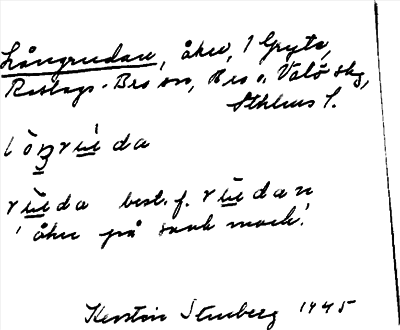 Långrudan, åker, 1 Gryta,
Roslags-Bro sn, Bro o. Vätö skg,
Sthlms l.
lòŋrùda
rùda best. f. rùdan
'åker på sank mark'.
Kerstin Stenberg 1945